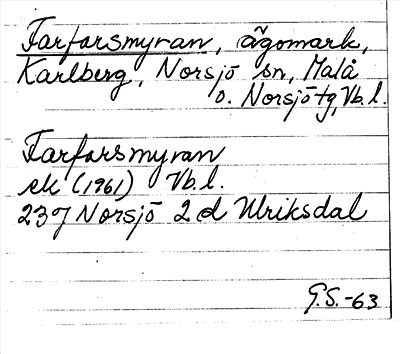 Farfarsmyran, ägomark,
Karlberg, Norsjö sn, Malå
o. Norsjö tg, Vb. l.
Farfarsmyran
ek (1961) Vb. l.
23J Norsjö 2 d Ulriksdal
G.S. -63